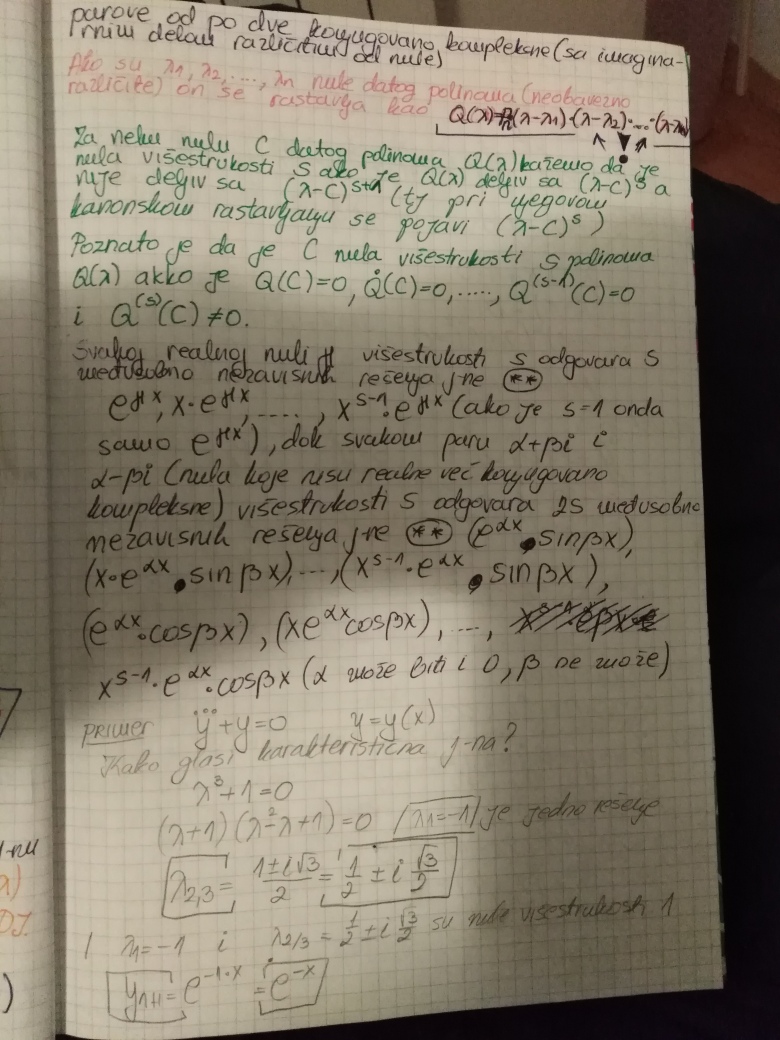 parove od po dve konjugovano kompleksne (sa imagina-
rnim delom različitim od nule)
Ako su λ1, λ2, ..., λn nule datog polinoma (neobavezno
različite) on se rastavlja kao Q(λ)=(λ-λ1)·(λ-λ2)·...·(λ-λn)
Za neku nulu C datog polinoma Q(λ) kažemo da je
nula višestrukosti S ako je Q(λ) deljiv sa (λ-C)^S a
nije deljiv sa (λ-C)^{S+1} (tj pri njegovom
kanonskom rastavljanju se pojavi (λ-C)^S)
Poznato je da je C nula višestrukosti S polinoma
Q(λ) akko je Q(C)=0, Q̇(C)=0, ....., Q^{(S-1)}(C)=0
i Q^{(S)}(C)≠0.
Svakoj realnoj nuli γ višestrukosti s odgovara s
međusobno nezavisnih rešenja j-ne (**)
e^{γx}, x·e^{γx}, ....., x^{s-1}·e^{γx} (ako je s=1 onda
samo e^{γx}), dok svakom paru α+βi i
α-βi (nula koje nisu realne već konjugovano
kompleksne) višestrukosti S odgovara 2S međusobno
nezavisnih rešenja j-ne (**) (e^{αx}·sinβx),
(x·e^{αx}·sinβx), ..., (x^{s-1}·e^{αx}·sinβx),
(e^{αx}·cosβx), (xe^{αx}cosβx), ...,
x^{s-1}·e^{αx}·cosβx (α može biti i 0, β ne može)
PRIMER y⃛+y=0 y=y(x)
Kako glasi karakteristična j-na?
λ³+1=0
(λ+1)(λ²-λ+1)=0 λ1=-1 je jedno rešenje
λ2,3= (1±i√3)/2 = 1/2 ± i √3/2
λ1=-1 i λ2/3= 1/2 ± i √3/2 su nule višestrukosti 1
y1H= e^{-1·x} = e^{-x}